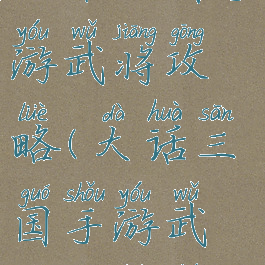 yóu wǔ jiàng gōng
游武将攻
lüè dà huà sān
略(大话三
guó shǒu yóu wǔ
国手游武